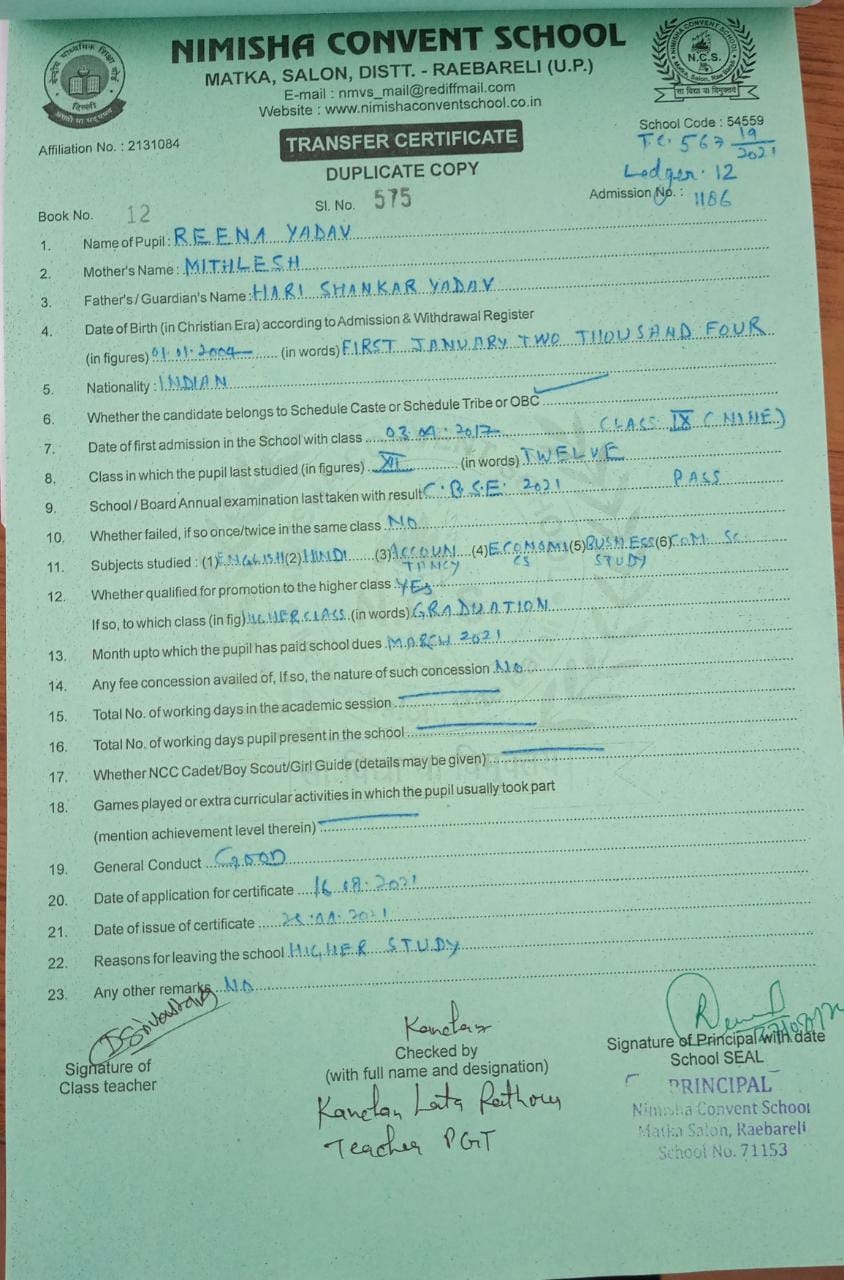 NIMISHA CONVENT SCHOOL
MATKA, SALON, DISTT. - RAEBARELI (U.P.)
E-mail : nmvs_mail@rediffmail.com
Website : www.nimishaconventschool.co.in
केन्द्रीय माध्यमिक शिक्षा बोर्ड
दिल्ली
असतो मा सद्गमय
NIMISHA CONVENT SCHOOL
N.C.S.
Matka, Salon, Rae Bareli
सा विद्या या विमुक्तये
Affiliation No. : 2131084
TRANSFER CERTIFICATE
School Code : 54559
T.C. 567 19/2021
DUPLICATE COPY
Ledger. 12
Book No. 12
Sl. No. 575
Admission No. : 1186
1. Name of Pupil : REENA YADAV
2. Mother's Name : MITHLESH
3. Father's / Guardian's Name : HARI SHANKAR YADAV
4. Date of Birth (in Christian Era) according to Admission & Withdrawal Register
(in figures) 01.01.2004 (in words) FIRST JANUARY TWO THOUSAND FOUR
5. Nationality : INDIAN
6. Whether the candidate belongs to Schedule Caste or Schedule Tribe or OBC
7. Date of first admission in the School with class 03.04.2017 CLASS IX (NINE)
8. Class in which the pupil last studied (in figures) XII (in words) TWELVE
9. School / Board Annual examination last taken with result C.B.S.E. 2021 PASS
10. Whether failed, if so once/twice in the same class NO
11. Subjects studied : (1) ENGLISH (2) HINDI (3) ACCOUNTANCY (4) ECONOMICS (5) BUSINESS STUDY (6) COM. SC.
12. Whether qualified for promotion to the higher class YES
If so, to which class (in fig) HIGHER CLASS (in words) GRADUATION
13. Month upto which the pupil has paid school dues MARCH 2021
14. Any fee concession availed of, If so, the nature of such concession NO
15. Total No. of working days in the academic session
16. Total No. of working days pupil present in the school
17. Whether NCC Cadet/Boy Scout/Girl Guide (details may be given)
18. Games played or extra curricular activities in which the pupil usually took part
(mention achievement level therein)
19. General Conduct GOOD
20. Date of application for certificate 16.08.2021
21. Date of issue of certificate
22. Reasons for leaving the school HIGHER STUDY
23. Any other remarks NO
Signature of
Class teacher
Checked by
(with full name and designation)
Kanchan Lata Rathour
Teacher PGT
Signature of Principal with date
School SEAL
PRINCIPAL
Nimisha Convent School
Matka Salon, Raebareli
School No. 71153